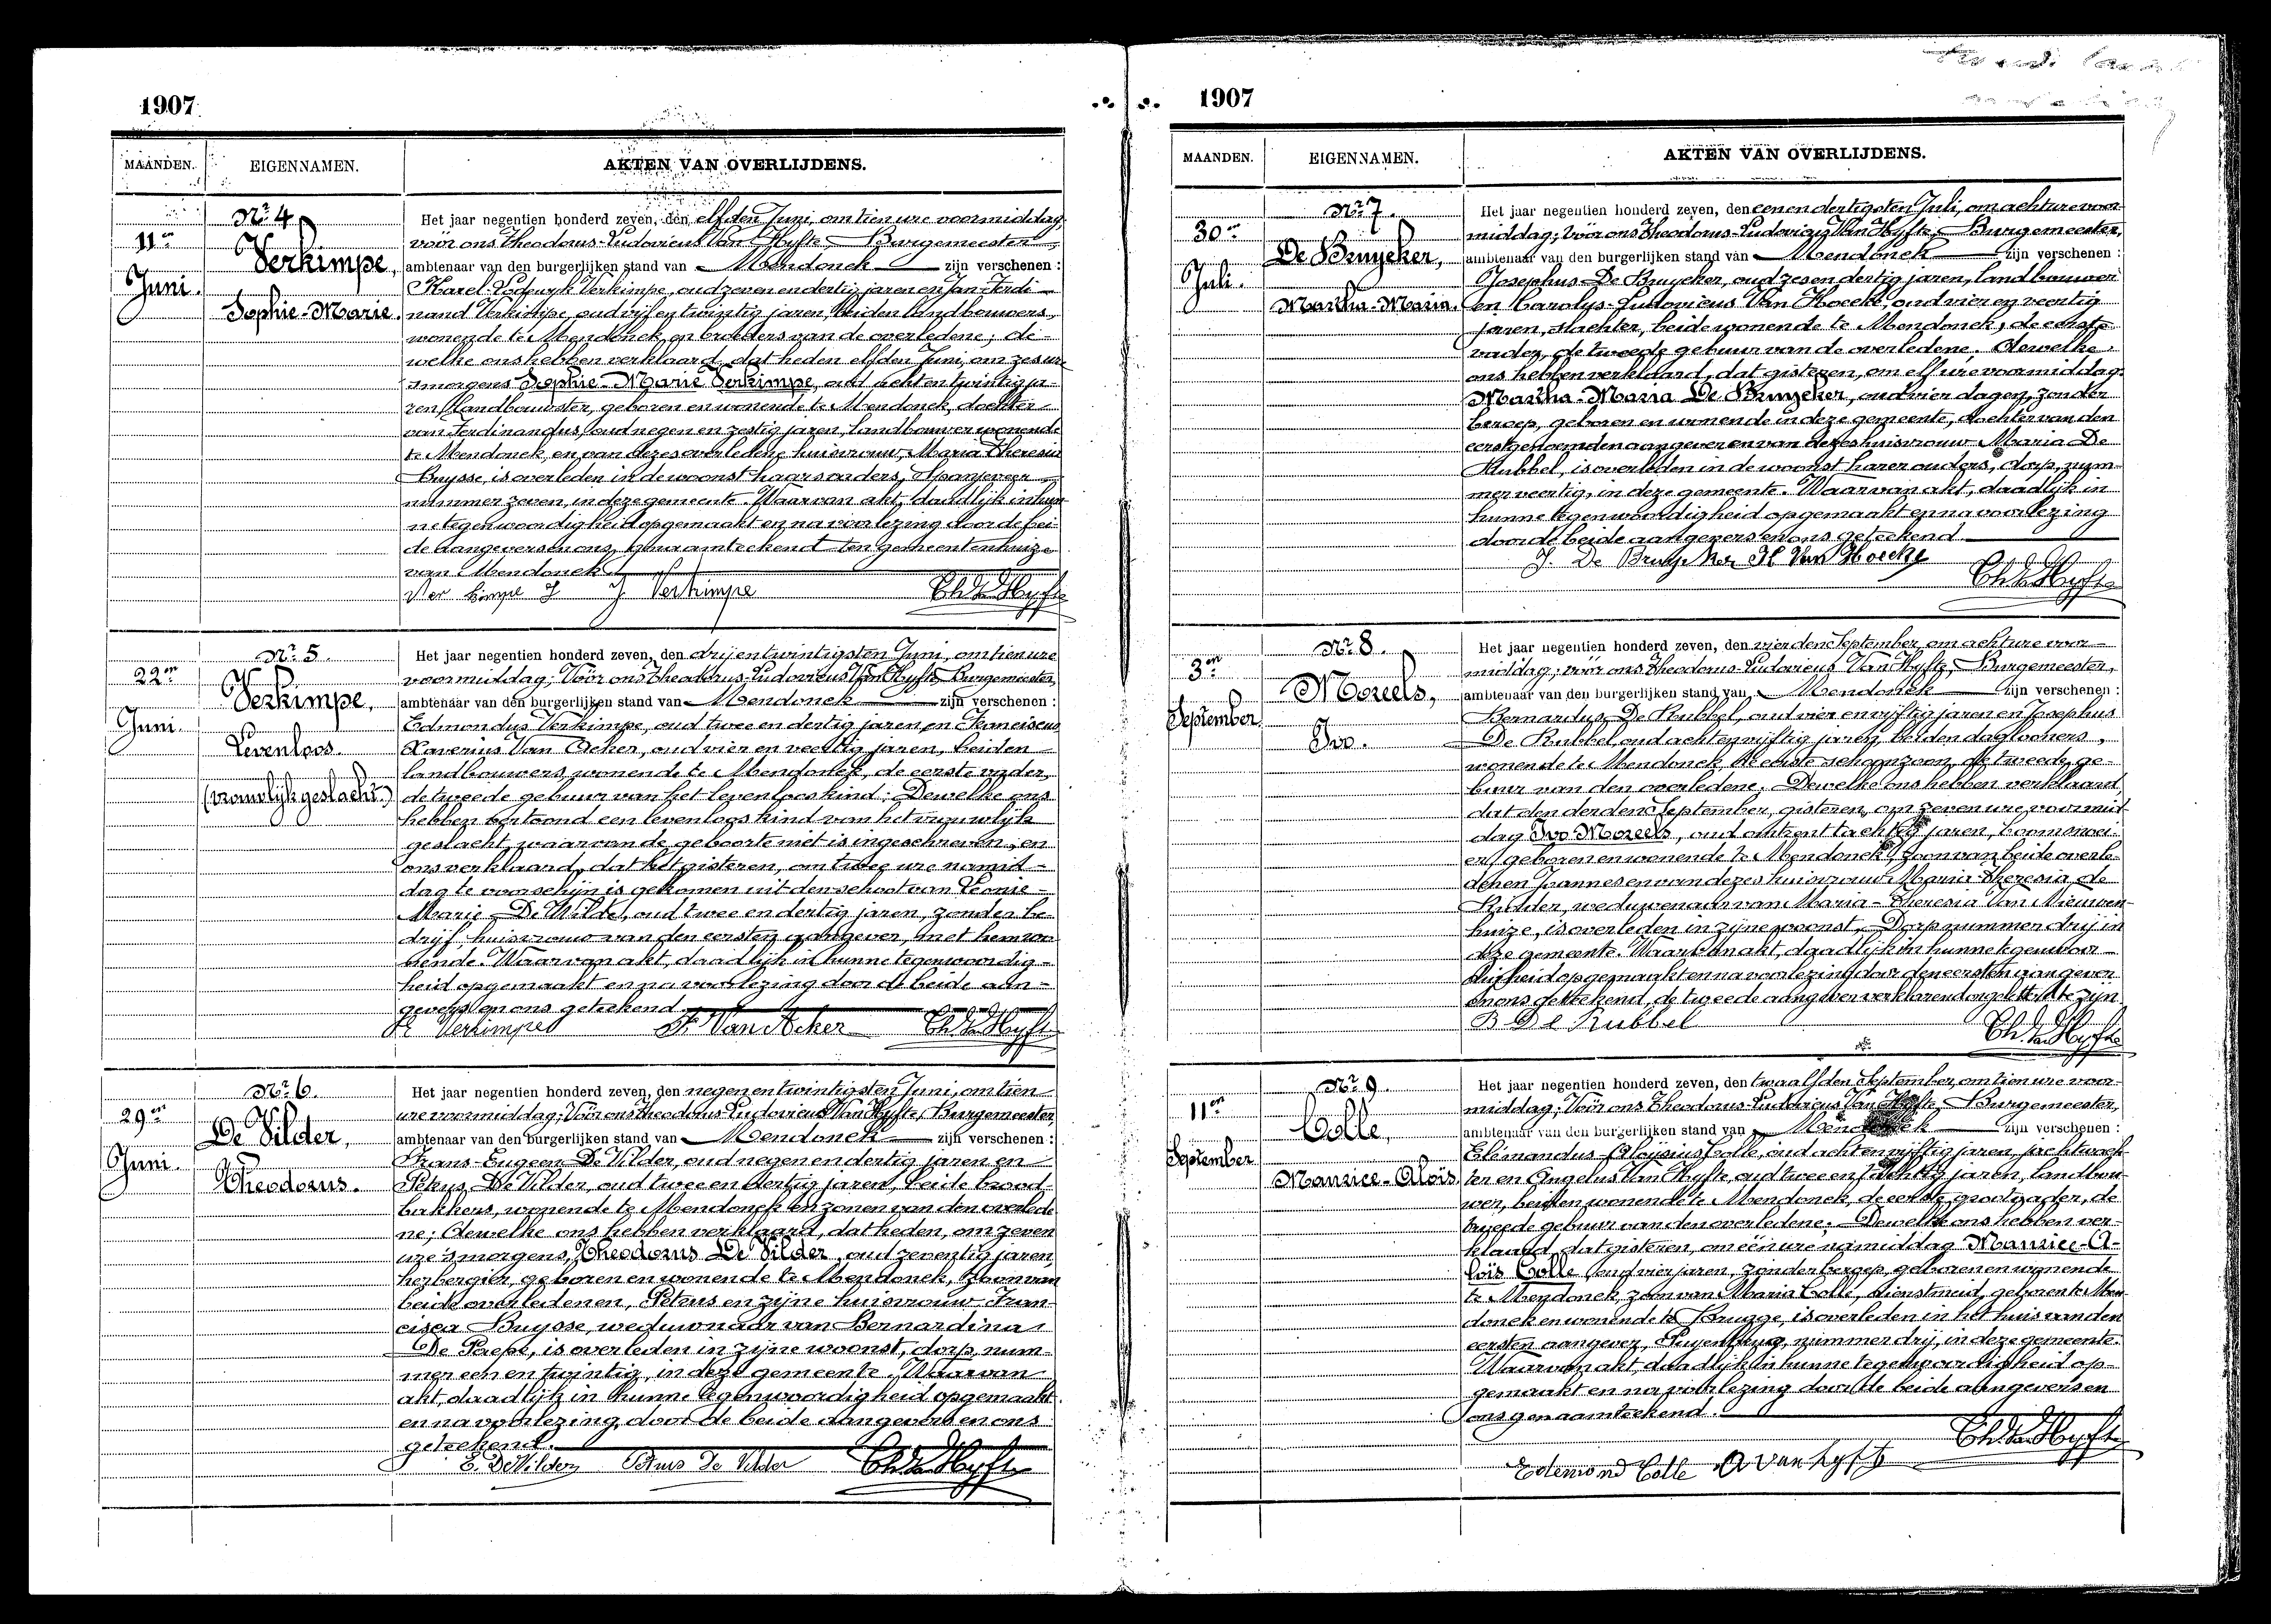 1907
MAANDEN. EIGENNAMEN. AKTEN VAN OVERLIJDENS.
11en Juni.
Nr 4
Verkimpe,
Sophie-Marie.
Het jaar negentien honderd zeven, den elfden Juni, om tien ure voormiddag,
voör ons Theodorus-Ludovicus Van Hyfte, Burgemeester,
ambtenaar van den burgerlijken stand van Mendonck zijn verschenen :
Karel-Lodewyk Verkimpe, oud zeven en dertig jaren en Jan-Ferdi-
nand Verkimpe, oud vijf en twintig jaren, beiden landbouwers,
wonende te Mendonck en broeders van de overledene; de-
welke ons hebben verklaard, dat heden elfden Juni, om zes ure
smorgens Sophie-Marie Verkimpe, oud acht en twintig ja-
ren, landbouwster, geboren en wonende te Mendonck, dochter
van Ferdinandus, oud negen en zestig jaren, landbouwer wonende
te Mendonck, en van dezes overledene huisvrouw, Maria Theresia
Buysse, is overleden in de woonst haars vaders, Spanjeveer
nummer zeven, in deze gemeente. Waarvan akt, daadlijk in hun-
ne tegenwoordigheid opgemaakt en na voorlezing door de bei-
de aangevers en ons, genaamteekend ten gemeentenhuize
van Mendonck.
Ver kimpe J J Verkimpe Th. Van Hyfte
22en Juni.
Nr 5.
Verkimpe,
Levenloos.
(vrouwlijk geslacht.)
Het jaar negentien honderd zeven, den drij en twintigsten Juni, om tien ure
voormiddag; Voör ons Theodorus-Ludovicus Van Hyfte, Burgemeester,
ambtenaar van den burgerlijken stand van Mendonck zijn verschenen :
Edmondus Verkimpe, oud twee en dertig jaren, en
Xaverius Van Acker, oud vier en veertig jaren, beiden
landbouwers, wonende te Mendonck, de eerste vader,
de tweede gebuur van het levenloos kind; Dewelke ons
hebben vertoond een levenloos kind van het vrouwlijk
geslacht, waarvan de geboorte niet is ingeschreven, en
ons verklaard, dat het gisteren, om twee ure namid-
dag te voorschijn is gekomen uit den schoot van Leonie-
Marie De Wilde, oud twee en dertig jaren, zonder be-
drijf, huisvrouw van den eersten aangever, met hem wo-
nende. Waarvan akt, daadlijk in hunne tegenwoordig-
heid opgemaakt en na voorlezing door de beide aan-
gevers en ons geteekend.
Verkimpe Van Acker Th. Van Hyfte
29en Juni.
Nr 6.
De Vilder,
Theodorus.
Het jaar negentien honderd zeven, den negen en twintigsten Juni, om tien
ure voormiddag; Voör ons Theodorus-Ludovicus Van Hyfte, Burgemeester,
ambtenaar van den burgerlijken stand van Mendonck zijn verschenen :
Frans-Eugeen De Vilder, oud negen en dertig jaren en
Petrus De Vilder, oud twee en dertig jaren, beide brood-
bakkers, wonende te Mendonck en zonen van den overlede-
ne; dewelke ons hebben verklaard, dat heden, om zeven
ure smorgens, Theodorus De Vilder, oud zeventig jaren,
herbergier, geboren en wonende te Mendonck, zoon van
beide overledenen, Petrus en zijne huisvrouw Fran-
cisca Buysse, weduwnaar van Bernardina
De Paepe, is overleden in zijne woonst, dorp, num-
mer een en twintig, in deze gemeente. Waarvan
akt, daadlijk in hunne tegenwoordigheid opgemaakt
en na voorlezing, door de beide aangevers en ons
geteekend.
E. De Vilder Petrus De Vilder Th. Van Hyfte
1907
MAANDEN. EIGENNAMEN. AKTEN VAN OVERLIJDENS.
30en Juli.
Nr 7.
De Bruycker,
Martha-Maria.
Het jaar negentien honderd zeven, den een en dertigsten Juli, om acht ure voor-
middag; Voör ons Theodorus-Ludovicus Van Hyfte, Burgemeester,
ambtenaar van den burgerlijken stand van Mendonck zijn verschenen :
Josephus De Bruycker, oud zes en dertig jaren, landbouwer
en Carolus-Ludovicus Van Hoecke, oud vier en veertig
jaren, slachter, beide wonende te Mendonck, de eerste
vader, de tweede gebuur van de overledene; dewelke
ons hebben verklaard, dat gisteren, om elf ure voormiddag
Martha-Maria De Bruycker, oud vier dagen, zonder
beroep, geboren en wonende in deze gemeente, dochter van den
eerstgenoemden aangever en van dezes huisvrouw Maria De
Rubbel, is overleden in de woonst harer ouders, dorp, num-
mer veertig, in deze gemeente. Waarvan akt, daadlijk in
hunne tegenwoordigheid opgemaakt en na voorlezing
door de beide aangevers en ons geteekend.
J. De Bruycker Van Hoecke Th. Van Hyfte
3en September
Nr 8.
Moreels,
Ivo.
Het jaar negentien honderd zeven, den vierden September, om acht ure voor-
middag; voör ons Theodorus-Ludovicus Van Hyfte, Burgemeester,
ambtenaar van den burgerlijken stand van Mendonck zijn verschenen :
Bernardus De Rubbel, oud vier en vijftig jaren en Josephus
De Rubbel, oud acht en vijftig jaren, beiden dagloners,
wonende te Mendonck, de eerste schoonzoon, de tweede ge-
buur van den overledene; Dewelke ons hebben verklaard,
dat den derden September, gisteren, om zeven ure voormid-
dag Ivo Moreels, oud omtrent tachtig jaren, boomsnoei-
er, geboren en wonende te Mendonck, zoon van beide overle-
denen Joannes en van dezes huisvrouw Maria-Theresia de
Ridder, weduwenaar van Maria-Theresia Van Nieuwen-
huize, is overleden in zijne woonst, Dorp nummer drij in
deze gemeente. Waarvan akt, daadlijk in hunne tegenwoor-
digheid opgemaakt en na voorlezing door den eersten aangever
en ons geteekend, de tweede aangever verklarend ongeletterd te zijn.
B De Rubbel Th. Van Hyfte
11en September
Nr 9.
Colle,
Maurice-Aloïs.
Het jaar negentien honderd zeven, den twaalfden September, om tien ure voor-
middag; Voör ons Theodorus-Ludovicus Van Hyfte, Burgemeester,
ambtenaar van den burgerlijken stand van Mendonck zijn verschenen :
Aloysius Colle, oud acht en vijftig jaren, jachtwach-
ter en Angelus Van Hyfte, oud twee en jaren, landbou-
wer, beiden wonende te Mendonck, de eerste grootvader, de
tweede gebuur van den overledene; Dewelke ons hebben ver-
klaard, dat gisteren, om één ure namiddag Maurice-A-
loïs Colle, oud vier jaren, zonder beroep, geboren en wonende
te Mendonck, zoon van Maria Colle, dienstmeid, geboren te Men-
donck en wonende te Brugge, is overleden in het huis van den
eersten aangever, nummer drij, in deze gemeente.
Waarvan akt, daadlijk in hunne tegenwoordigheid op-
gemaakt en na voorlezing door de beide aangevers en
ons genaamteekend.
Edemond Colle A Van hyfte Th. Van Hyfte